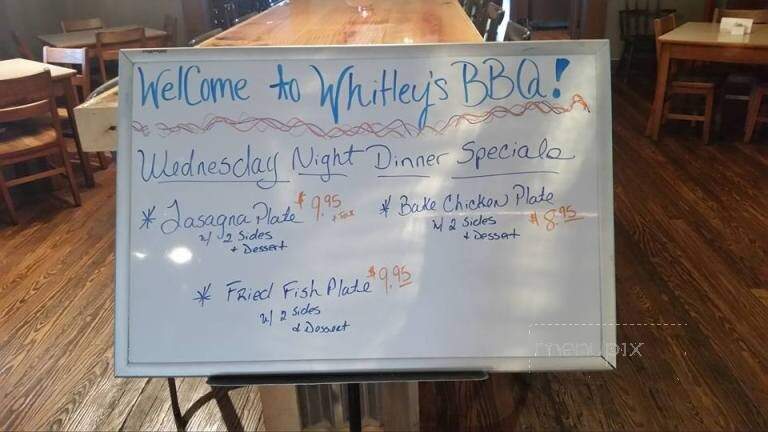 Welcome to Whitley's BBQ!
Wednesday Night Dinner Specials
* Lasagna Plate $9.95
+ tax
w/ 2 Sides
+ Dessert
* Bake Chicken Plate
w/ 2 Sides $8.95
+ Dessert
* Fried Fish Plate $9.95
w/ 2 Sides
& Dessert
menupix